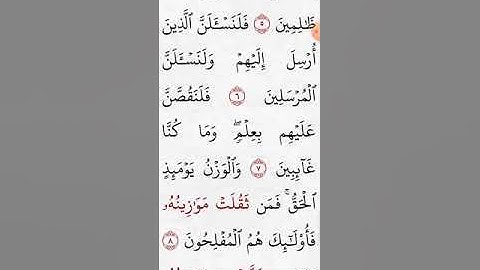 ظَٰلِمِينَ ٥ فَلَنَسْـَٔلَنَّ ٱلَّذِينَ
أُرْسِلَ إِلَيْهِمْ وَلَنَسْـَٔلَنَّ
ٱلْمُرْسَلِينَ ٦ فَلَنَقُصَّنَّ
عَلَيْهِم بِعِلْمٍۢ ۖ وَمَا كُنَّا
غَآئِبِينَ ٧ وَٱلْوَزْنُ يَوْمَئِذٍ
ٱلْحَقُّ ۚ فَمَن ثَقُلَتْ مَوَٰزِينُهُۥ
فَأُو۟لَٰٓئِكَ هُمُ ٱلْمُفْلِحُونَ ٨